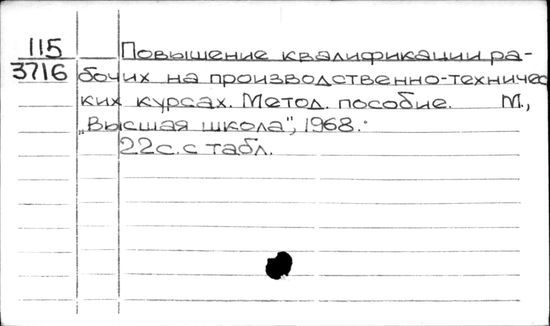 115 Повышение квалификации ра-
3716 бочих на производственно-техничес
ких курсах. Метод. пособие. М.,
„Высшая школа", 1968.
22с. с табл.